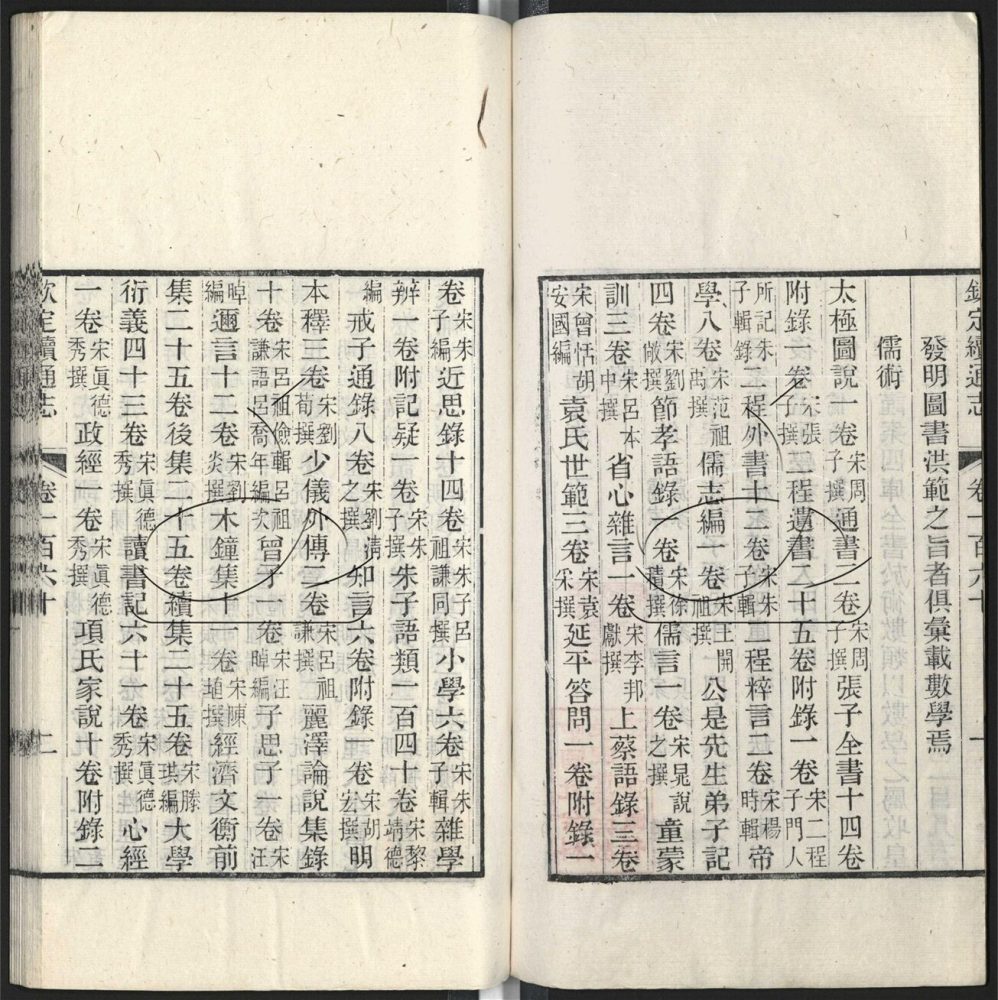 欽定續通志 卷一百六十 一
發明圖書洪範之旨者俱彙載數學焉
儒術
太極圖說一卷宋周子撰通書二卷宋周子撰張子全書十四卷
附錄一卷宋張子撰二程遺書二十五卷附錄一卷宋二程子門人
所記朱子輯錄二程外書十二卷宋朱子輯二程粹言二卷宋楊時輯帝
學八卷宋范祖禹撰儒志編一卷宋王開祖撰公是先生弟子記
四卷宋劉敞撰節孝語錄一卷宋徐積撰儒言一卷宋晁說之撰童蒙
訓三卷宋呂本中撰省心雜言一卷宋李邦獻撰上蔡語錄三卷
宋曾恬胡安國編袁氏世範三卷宋袁采撰延平答問一卷附錄一
卷宋朱子編近思錄十四卷宋朱子呂祖謙同撰小學六卷宋朱子輯雜學
辨一卷附記疑一卷宋朱子撰朱子語類一百四十卷宋黎靖德
編戒子通錄八卷宋劉清之撰知言六卷附錄一卷宋胡宏撰明
本釋三卷宋劉荀撰少儀外傳二卷宋呂祖謙撰麗澤論說集錄
十卷宋呂祖儉輯呂祖謙語呂喬年編次曾子一卷宋汪晫編子思子一卷宋汪
晫編邇言十二卷宋劉炎撰木鐘集十一卷宋陳埴撰經濟文衡前
集二十五卷後集二十五卷續集二十五卷宋滕珙編大學
衍義四十三卷宋眞德秀撰讀書記六十一卷宋眞德秀撰心經
一卷宋眞德秀撰政經一卷宋眞德秀撰項氏家說十卷附錄二
欽定續通志 卷一百六十 二